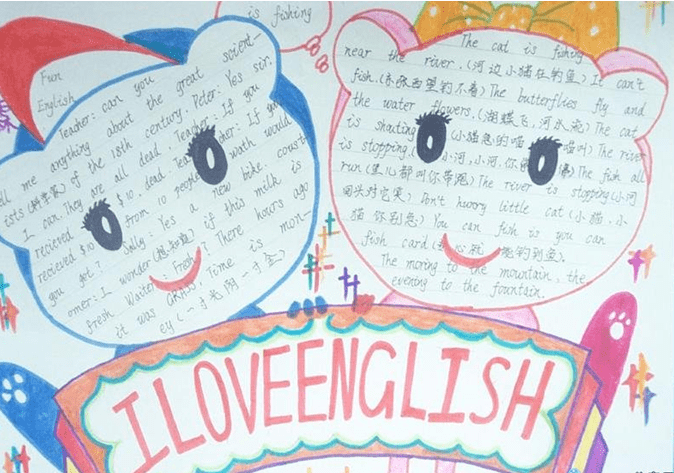 is fishing
Fun
English
Teacher: can you
tell me anything about the great scient-
ists (科学家) of the 18th century Peter: Yes sir.
I can. They are all dead. Teacher: If you
recieved $10 from 10 people
you got? Sally: Yes a new bike. coust-
omer: I wonder if this milk is
fresh Waiter: Fresh? There hours ago
it was GRASS. Time is mon-
ey (一寸光阴一寸金)
The cat is fishing
near the river. (河边小猫在钓鱼) It can't
fish. (东张西望钓不着) The butterflies fly and
the water flowers. The cat
is shouting (小猫急的喵 喵叫) The river
is stopping. (小河,小河你 The fish all
run The river is stopping (小河
回头对它笑) Don't hurry little cat (小猫,小
猫 你别急) You can fish is you can
fish card
The moring to the mountain, the
evening to the fountain.
ILOVEENGLISH